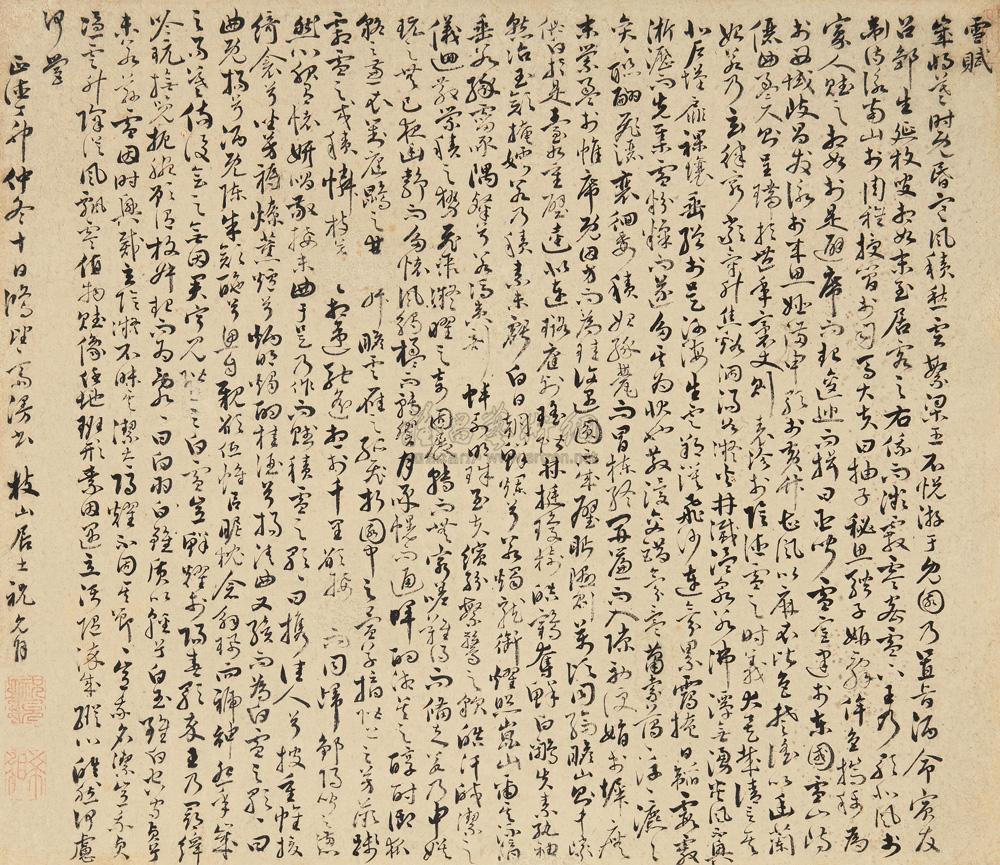 雪賦
歲將暮時既昏寒風積愁雲繁梁王不悅游于兔園乃置旨酒命賓友
召鄒生延枚叟相如末至居客之右俄而微霰零密雪下王乃歌北風於
衛詩詠南山於周雅授簡於司馬大夫曰抽子秘思騁子妍辭侔色揣稱為
寡人賦之相如於是避席而起逡巡而揖曰臣聞雪宮建於東國雪山峙
於西域岐昌發詠於來思姬滿申歌於黃竹曹風以麻衣比色楚謠以幽蘭
儷曲盈尺則呈瑞於豐年袤丈則表沴於陰德雪之時義大矣哉請言其
始若乃玄律窮嚴氣升焦溪涸湯谷凝火井滅溫泉冰沸潭無湧炎風不興
北戶墐扉裸壤垂繒於是河海生雲朔漠飛沙連氛累靄掩日韜霞霰
淅瀝而先集雪紛糅而遂多其為狀也散漫交錯氛氳蕭索藹藹浮浮瀌瀌
奕奕聯翩飛灑徘徊委積始緣甍而冒棟終開簾而入隙初便娟於墀廡
末縈盈於帷席既因方而為珪亦遇圓而成璧眄隰則萬頃同縞瞻山則千巖
俱白於是臺如重璧逵似連璐庭列瑤階林挺瓊樹皓鶴奪鮮白鷴失素紈袖
慚冶玉顏掩姱若乃積素未虧白日朝鮮爛兮若燭龍銜燿照崑山爾其流滴
垂冰緣霤承隅粲兮若馮夷剖蚌列明珠至夫繽紛繁騖之貌皓汗皦潔之
儀迴散縈積之勢飛聚凝曜之奇固展轉而無窮嗟難得而備知若乃申娛
玩之無已夜幽靜而多懷風觸楹而轉響月承幌而通暉酌湘吳之醇酎御狐
貉之兼衣對庭鵾之雙舞瞻雲雁之孤飛折園中之萱草摘階上之芳薇踐
霜雪之交積憐枝葉之相違馳遙思於千里願接手而同歸鄒陽聞之懣
然心服有懷妍唱敬接末曲于是乃作而賦積雪之歌曰攜佳人兮披重幄援
綺衾兮坐芳褥燎薰爐兮炳明燭酌桂酒兮揚清曲又續而為白雪之歌曰
曲既揚兮酒既陳朱顏酡兮思自親願低帷以昵枕念解珮而褫紳怨年歲
之易暮傷後會之無因君寧見階上之白雪豈鮮耀於陽春歌卒王乃尋繹
吟玩撫覽扼腕顧謂枚叔起而為亂亂曰白羽雖白質以輕兮白玉雖白空守貞兮
未若茲雪因時興滅玄陰凝不昧其潔太陽耀不固其節節豈我名潔豈我貞
憑雲升降從風飄零值物賦像任地班形素因遇立污隨染成縱心皓然何慮
何營
正德壬申仲冬十日 枝山居士祝允明